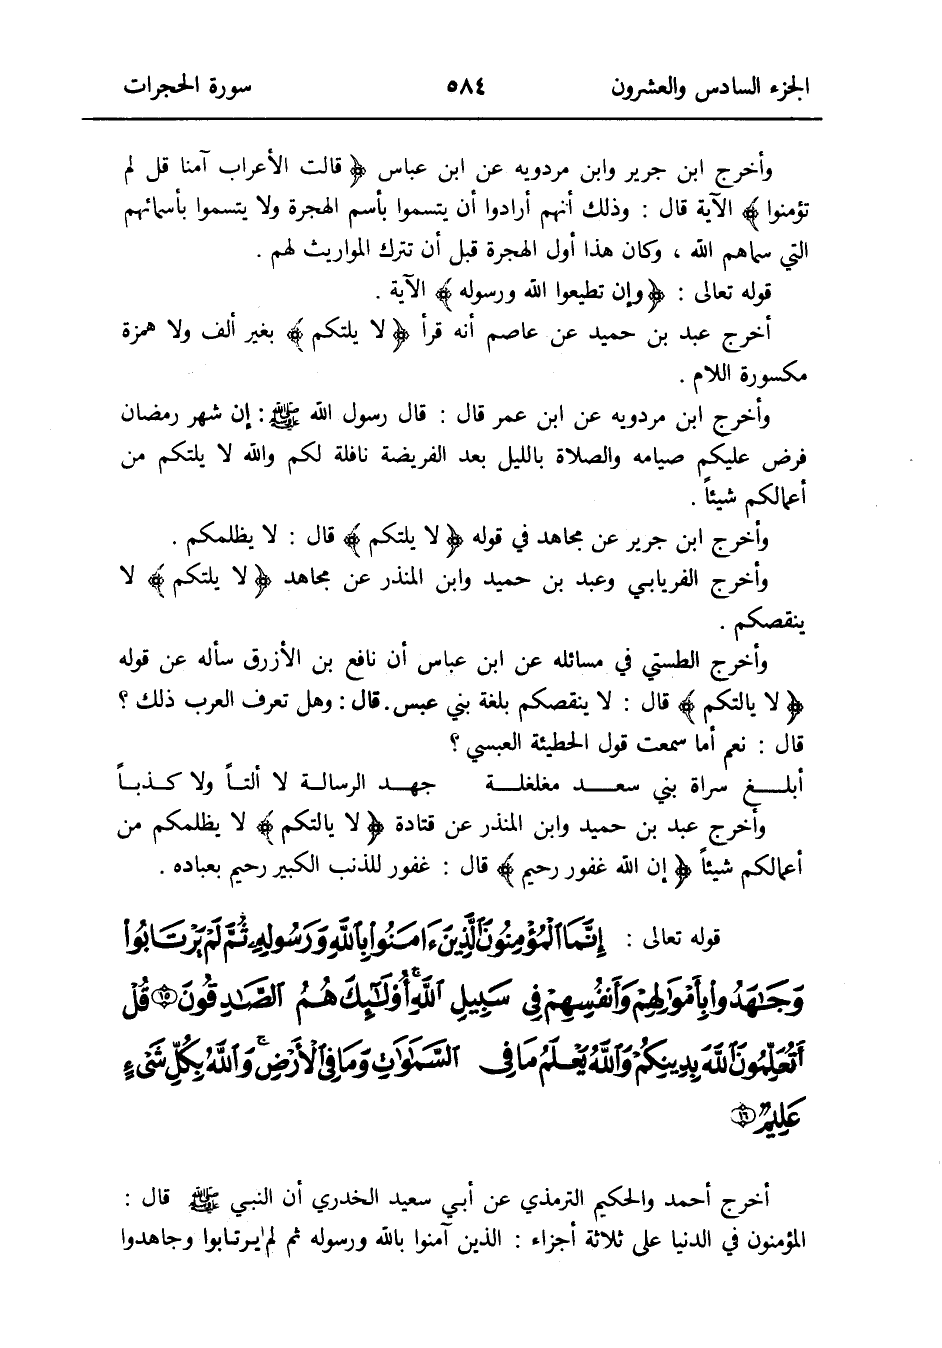 الجزء السادس والعشرون ٥٨٤ سورة الحجرات
وأخرج ابن جرير وابن مردويه عن ابن عباس ﴿ قالت الأعراب آمنا قل لم
تؤمنوا ﴾ الآية قال : وذلك أنهم أرادوا أن يتسموا بأسم الهجرة ولا يتسموا بأسمائهم
التي سماهم الله ، وكان هذا أول الهجرة قبل أن تترك المواريث لهم .
قوله تعالى : ﴿ وإن تطيعوا الله ورسوله ﴾ الآية .
أخرج عبد بن حميد عن عاصم أنه قرأ ﴿ لا يلتكم ﴾ بغير ألف ولا همزة
مكسورة اللام .
وأخرج ابن مردويه عن ابن عمر قال : قال رسول الله ﷺ : إن شهر رمضان
فرض عليكم صيامه والصلاة بالليل بعد الفريضة نافلة لكم والله لا يلتكم من
أعمالكم شيئاً .
وأخرج ابن جرير عن مجاهد في قوله ﴿ لا يلتكم ﴾ قال : لا يظلمكم .
وأخرج الفريابي وعبد بن حميد وابن المنذر عن مجاهد ﴿ لا يلتكم ﴾ لا
ينقصكم .
وأخرج الطستي في مسائله عن ابن عباس أن نافع بن الأزرق سأله عن قوله
﴿ لا يالتكم ﴾ قال : لا ينقصكم بلغة بني عبس . قال : وهل تعرف العرب ذلك ؟
قال : نعم أما سمعت قول الحطيئة العبسي ؟
أبلــغ سراة بني سعــد مغلغلــة جهــد الرسالــة لا ألتــاً ولا كــذبــاً
وأخرج عبد بن حميد وابن المنذر عن قتادة ﴿ لا يالتكم ﴾ لا يظلمكم من
أعمالكم شيئاً ﴿ إن الله غفور رحيم ﴾ قال : غفور للذنب الكبير رحيم بعباده .
قوله تعالى : إِنَّمَا ٱلْمُؤْمِنُونَ ٱلَّذِينَ ءَامَنُوا۟ بِٱللَّهِ وَرَسُولِهِۦ ثُمَّ لَمْ يَرْتَابُوا۟
وَجَٰهَدُوا۟ بِأَمْوَٰلِهِمْ وَأَنفُسِهِمْ فِى سَبِيلِ ٱللَّهِ ۚ أُو۟لَٰٓئِكَ هُمُ ٱلصَّٰدِقُونَ ﴿١٥﴾ قُلْ
أَتُعَلِّمُونَ ٱللَّهَ بِدِينِكُمْ وَٱللَّهُ يَعْلَمُ مَا فِى ٱلسَّمَٰوَٰتِ وَمَا فِى ٱلْأَرْضِ ۚ وَٱللَّهُ بِكُلِّ شَىْءٍ
عَلِيمٌ ﴿١٦﴾
أخرج أحمد والحكيم الترمذي عن أبي سعيد الخدري أن النبي ﷺ قال :
المؤمنون في الدنيا على ثلاثة أجزاء : الذين آمنوا بالله ورسوله ثم لم يرتابوا وجاهدوا